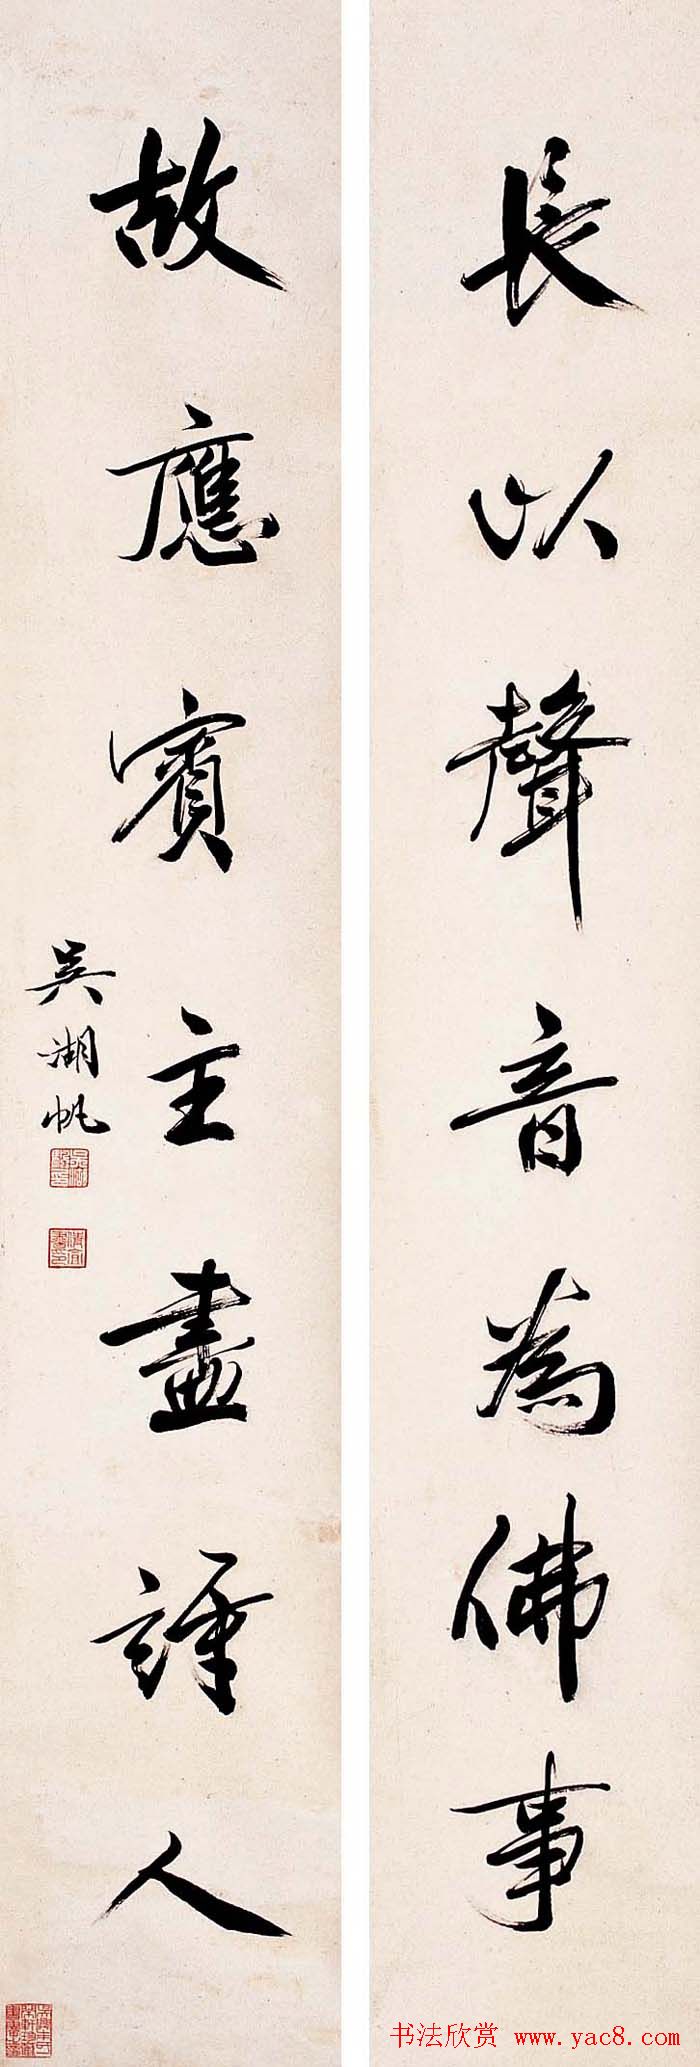 長以聲音為佛事
故應賓主盡詩人
吳湖帆
书法欣赏 www.yac8.com